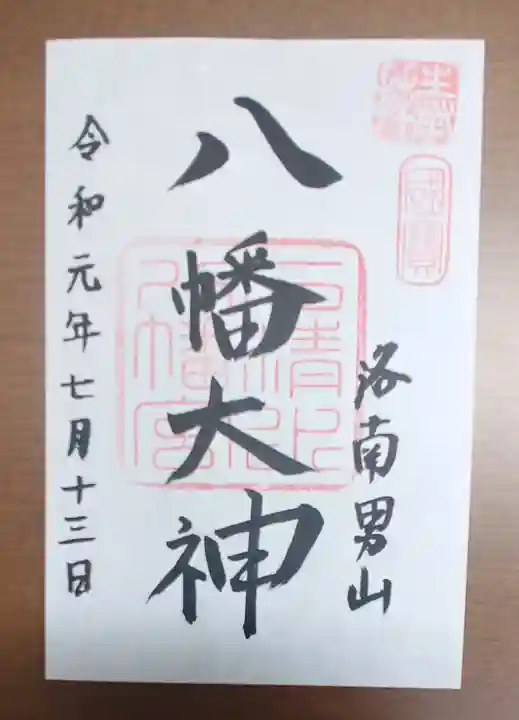 國寶
洛南男山
八幡大神
石清水
八幡宮
令和元年七月十三日